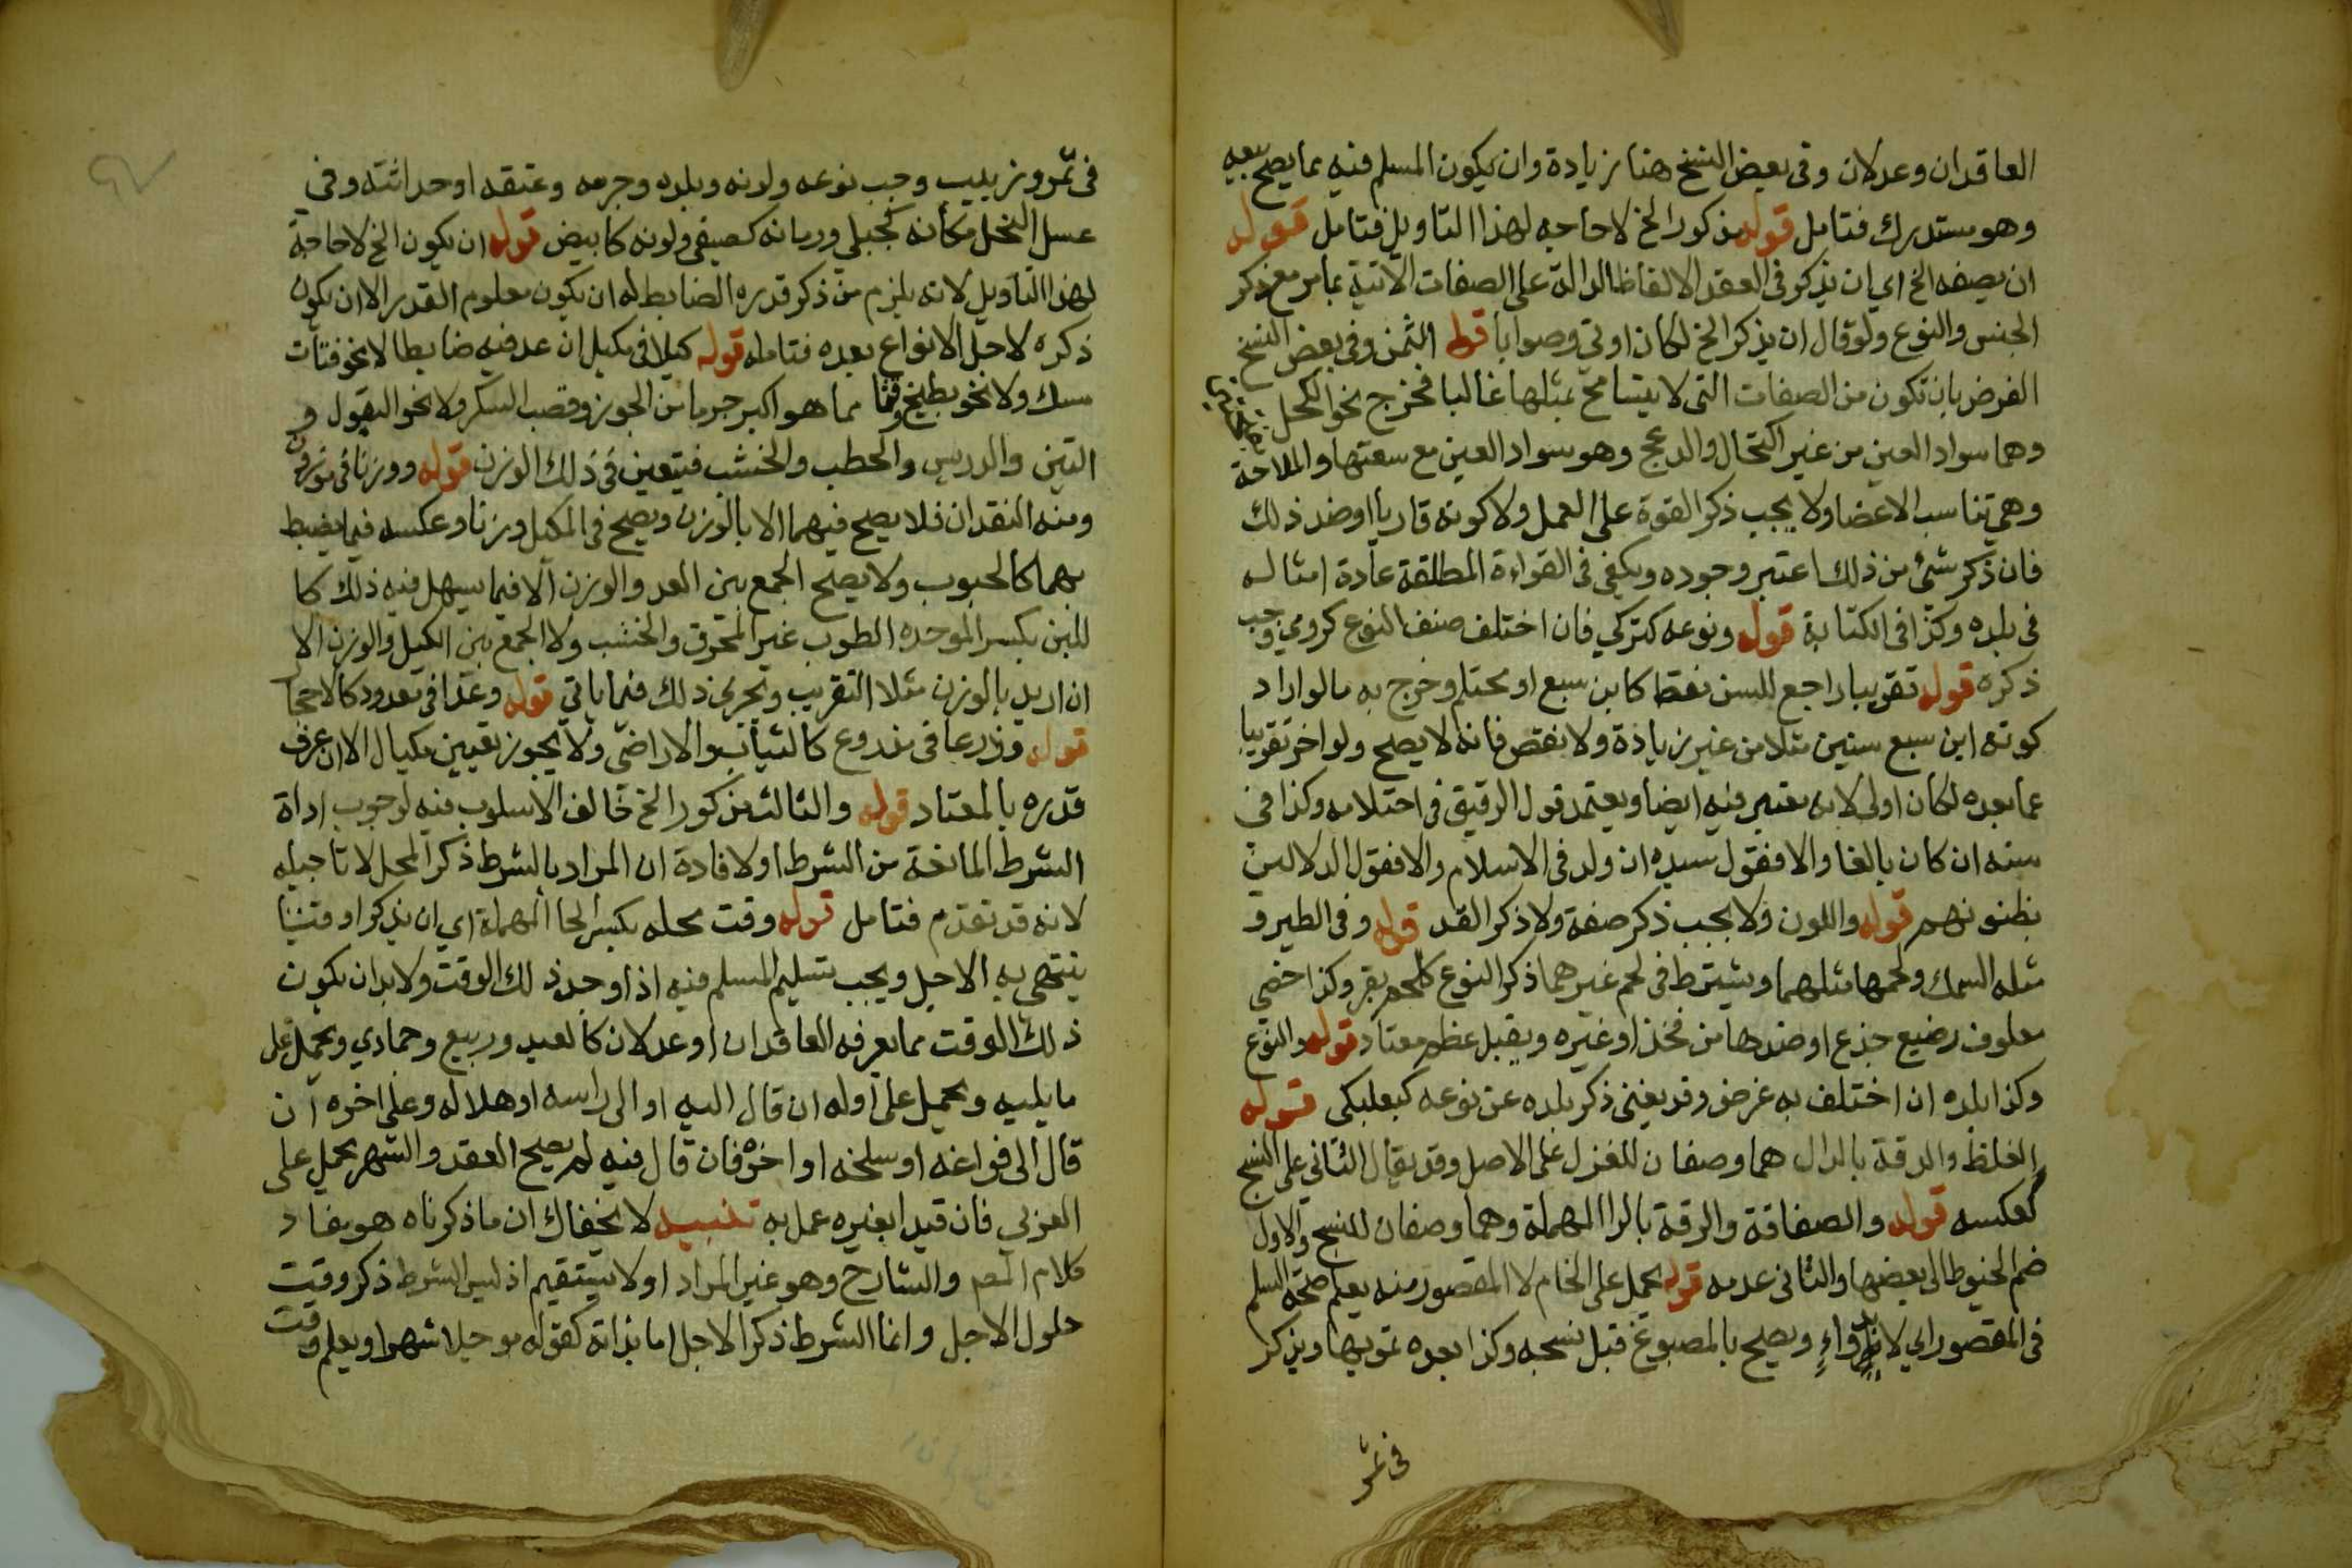 العاقدان وعدلان وفى بعض النسخ هنا زيادة وان يكون المسلم فيه مما يصح بيعه
وهو مستدرك فتامل قوله مذكورا الخ لاحاجه لهذا التاويل فتامل قوله
ان يصفه الخ اي ان يذكر فى العقد الالفاظ الدالة على الصفات الاتية بما مر مع ذكر
الجنس والنوع ولو قال ان يذكر الخ لكان اولى وصوابا قوله الثمن وفى بعض النسخ
الغرض بان تكون من الصفات التى لا يتسامح بمثلها غالبا فخرج نحو الكحل
وهما سواد العين من غير اكتحال والدعج وهو سواد العين مع سعتها والملاحة
وهى تناسب الاعضا ولا يجب ذكر القوة على العمل ولا كونه قاريا او ضد ذلك
فان ذكر شئ من ذلك اعتبر وجوده ويكفى فى القراءة المطلقة عادة امثاله
فى بلده وكذا فى الكتابة قوله ونوعه كتركي فان اختلف صنف النوع كرومي وجب
ذكره قوله تقريبا راجع للسن فقط كابن سبع او محتلم وخرج به ما لو اراد
كونه ابن سبع سنين مثلا من غير زيادة ولا نقص فانه لا يصح ولو اخر تقريبا
عما بعده لكان اولى لانه معتبر فيه ايضا ويعتمد قول الرقيق فى احتلامه وكذا فى
سنه ان كان بالغا والا فقول سيده ان ولد فى الاسلام والا فقول الدلالين
بظنونهم قوله واللون ولا يجب ذكر صفة ولا ذكر القد قوله وفى الطير و
مثله السمك ولحمها مثلهما ويشترط فى لحم غيرهما ذكر النوع كلحم بقر وكذا خصي
معلوف رضيع جذع او ضدها من فخذ او غيره ويقبل عظم معتاد قوله والنوع
وكذا بلده ان اختلف به غرض وقد يغنى ذكر بلده عن نوعه كبعلبكى قوله
الغلظ والدقة بالدال هما وصفان للغزل على الاصل وقد يقال الثانى على النسج
كعكسه قوله والصفاقة والرقة بالرا المهملة وهما وصفان للنسج والاول
ضم الخيوط الى بعضها والثانى عدمه قوله يحمل على الخام لا المقصور منه يعلم صحة السلم
فى المقصور اي لا ان دواء ويصح بالمصبوغ قبل نسجه وكذا بعده تمويها ويذكر
فى تمر
فى تمر وزبيب وجب نوعه ولونه وبلده وجرمه وعتقه او حداثته وفى
عسل النحل مكانه كجبلي وزمانه كصيفى ولونه كابيض قوله ان يكون الخ لاحاجة
لهذا التاويل لانه يلزم من ذكر قدره الضابط له ان يكون معلوم القدر الا ان يكون
ذكره لاجل الانواع بعده فتامله قوله كيلا فى مكيل ان عد فيه ضابطا لا نحو فتات
مسك ولا نحو بطيخ وقثا مما هو اكبر جرما من الجوز وقصب السكر ولا نحو البقول و
التبن والدريس والحطب والخشب فيتعين فى ذلك الوزن قوله ووزنا فى موزون
ومنه النقدان فلا يصح فيهما الا بالوزن ويصح فى المكيل وزنا وعكسه فيما يضبط
بهما كالحبوب ولا يصح الجمع بين العد والوزن الا فيما يسهل فيه ذلك كا
للبن بكسر الموحده الطوب غير المحرق والخشب ولا الجمع بين الكيل والوزن الا
ان اريد بالوزن مثلا التقريب ويجرى ذلك فيما ياتى قوله وعدا فى معدود كالاحجا
قوله وذرعا فى مذروع كالثياب والاراضى ولا يجوز تعيين مكيال الا ان عرف
قدره بالمعتاد قوله والثالث مذكور الخ خالف الاسلوب فيه لوجوب اداة
الشرط المانعة من الشرط او لافادة ان المراد بالشرط ذكر المحل لا تاجيله
لانه قد تقدم فتامل قوله وقت محله بكسر الحا المهملة اي ان يذكر وقتا
ينتهى به الاجل ويجب تسليم المسلم فيه اذا وجد ذلك الوقت ولا بد ان يكون
ذلك الوقت مما يعرفه العاقدان او عدلان كالعيد وربيع وجمادي ويحمل على
ما يليه ويحمل على اوله ان قال اليه او الى راسه او هلاله وعلى اخره ان
قال الى فراغه او سلخه او اخره فان قال فيه لم يصح العقد والشهر يحمل على
العربي فان قيدا بغيره عمل به تنبيه لا يخفاك ان ما ذكرناه هو مفاد
كلام المصم والشارح وهو غير المراد او لا يستقيم اذ ليس الشرط ذكر وقت
حلول الاجل وانما الشرط ذكر الاجل اما بذاته كقوله موجلا شهرا ويعلم وقت